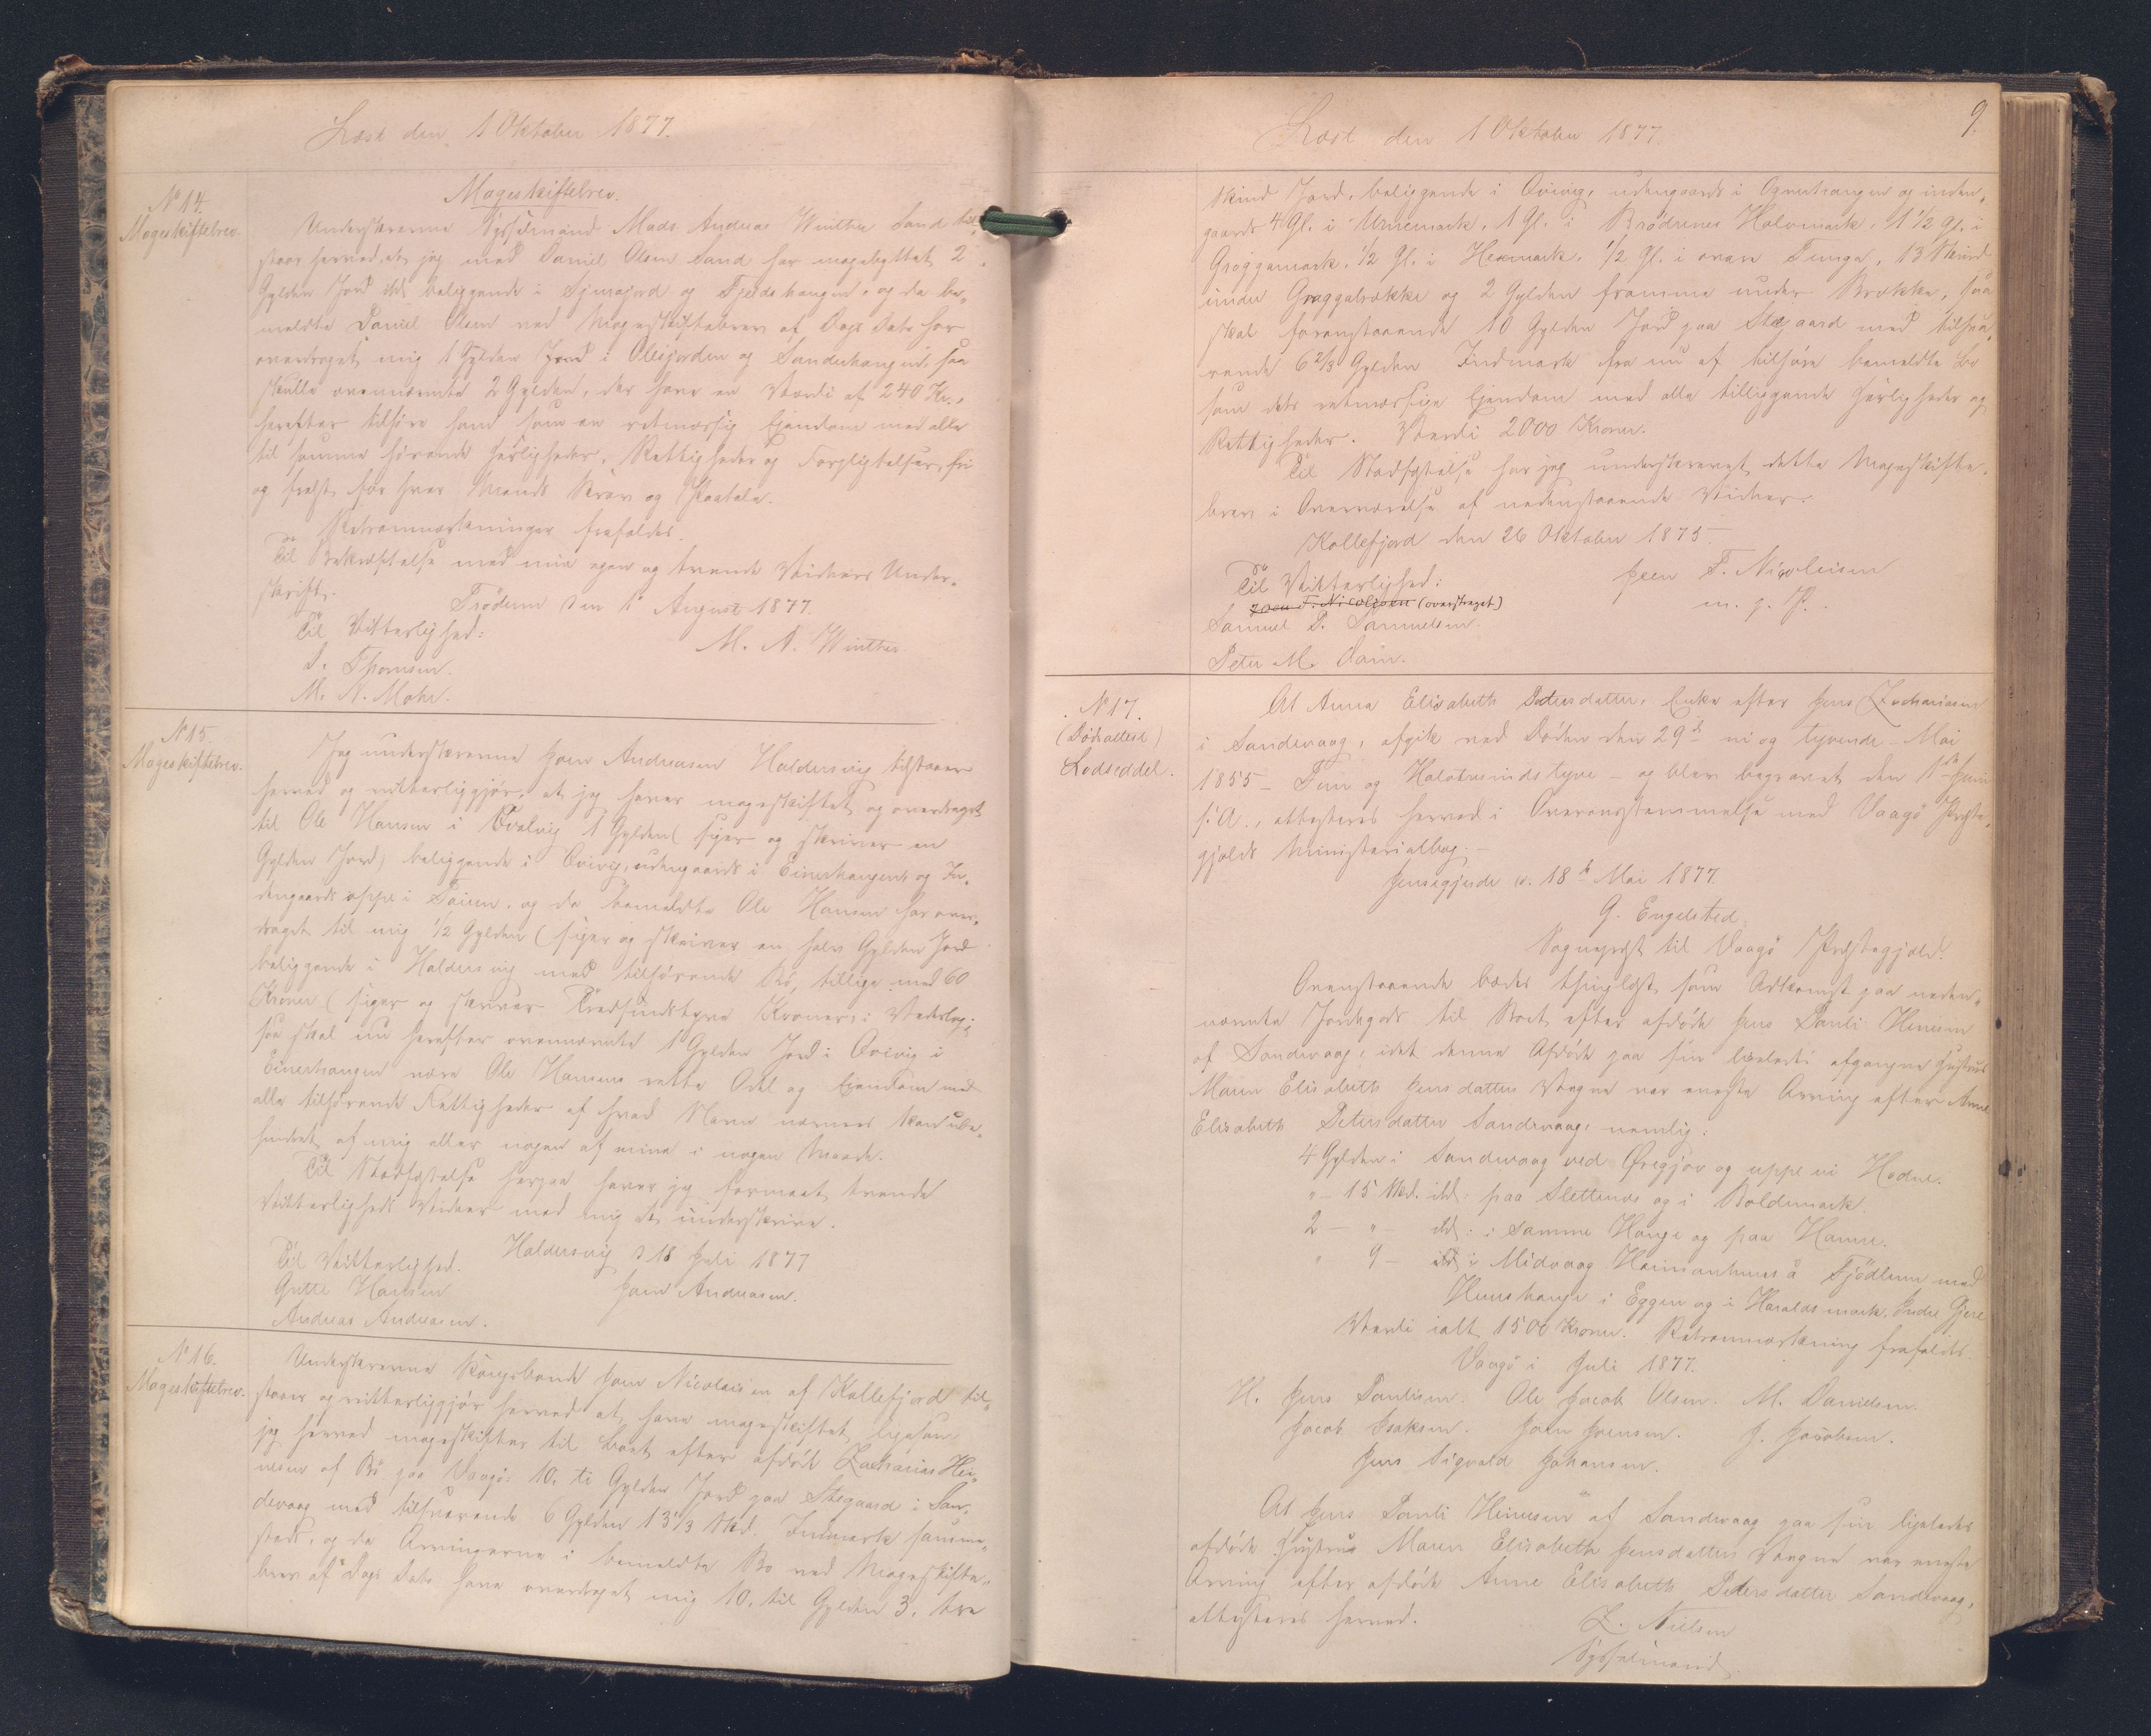 Læst den 1 Oktober 1877.
No 14.
Mageskiftebrev.
Mageskiftebrev.
Underskrevne Sysselmand Mads Andreas Winther Sand til„
staar herved, at jeg med Daniel Olsen Sand har magebyttet 2
Gylden Jord ibd. beliggende i og Fjeldshaugen, og da be„
meldte Daniel Olsen ved Mageskiftebrev af Dags Dato har
overdraget mig 1 Gylden Jord i Oleijorden og Sandeshaugen, saa
skulle ovennævnte 2 Gylden, der have en Værdi af 240 Kr.,
herefter tilhøre ham som en retmæssig Ejendom med alle
til samme hørende Herligheder, Rettigheder og Forpligtelser, fri
og frelst for hver Mands Krav og Paatale.
Retsanmærkninger frafaldes.
Til Bekræftelse med min egen og tvende Vidners Under„
skrift.
Frödum den 1' August 1877.
Til Vitterlighed:
M. A. Winther
D. Thomsen.
M. N. Mohr.
No 15.
Mageskiftebrev.
Jeg underskrevne Joen Andreasen Haldersvig tilstaaer
herved og vitterliggjør, at jeg haver mageskiftet og overdraget
til Ole Hansen i Qvalvig 1 Gylden (siger og skriver en
Gylden Jord) beliggende i Qvivig, udengaards i Einerhaugen og In„
dengaards oppe i, og da bemeldte Ole Hansen har over„
draget til mig 1/2 Gylden (siger og skriver en halv Gylden Jord
beliggende i Haldersvig med tilhørende Bø, tillige med 60
Kroner (siger og skriver Tredsindstyve Kroner) i Vederlag;
saa skal nu herefter ovennævnte 1 Gylden Jord i Qvivig i
Einerhaugen være Ole Hansens rette Odel og Ejendom med
alle tilhørende Rettigheder af hvad Navn nævnes kan ube„
hindret af mig eller nogen af mine i nogen Maade.
Til Stadfæstelse herpaa haver jeg formaaet tvende
Vitterligheds Vidner med mig at underskrive.
Haldersvig d 18 Juli 1877
Til Vitterlighed.
Gutte Hansen
Joen Andreasen.
Andreas Andreasen.
No 16.
Mageskiftebrev.
Underskrevne Kongsbonde Joen Nicolaisen af Kollefjord til„
staaer og vitterliggjør herved at have mageskiftet, ligesom
jeg herved mageskifter til Boet efter afdøde Zacharias Hei„
nesen af Bø paa Vaagø: 10, ti Gylden Jord paa Stegaard i San„
devaag med tilsvarende 6 Gylden 13 1/3 Skd. Indmark samme„
steds, og da Arvingerne i bemeldte Bo ved Mageskifte„
brev af Dags Dato have overdraget mig 10, til Gylden 3, tre
9.
Læst den 1 Oktober 1877.
Skind Jord, beliggende i Qvivig, udengaards i Ognarhaugen og inden„
gaards 4 Gl. i Urnemark, 1 Gl. i Brødrenes Halvmark, 1 1/2 Gl. i
Groggamark, 1/2 Gl. i Hexmark, 1/2 Gl. i ovare Tunga, 13 Skind
under Graggabrække og 2 Gylden framme under Brække, saa
skal foranstaaende 10 Gylden Jord paa Stegaard med tilsva„
rende 6 2/3 Gylden Indmark fra nu af tilhøre bemeldte Bo
som dets retmæssige Ejendom med alle tilliggende Herligheder og
Rettigheder. Værdi 2000 Kroner.
Til Stadfæstelse har jeg underskrevet dette Mageskifte„
brev i Overværelse af nedenstaaende Vidner.
Kollefjord den 26 Oktober 1875.
Til Vitterlighed:
Joen F. Nicolaisen
Joen F. Nicolaisen (overstreget)
m. f. P.
Samuel P. Samuelsen.
Peter M. Dam.
No 17.
(Dødsattest)
Lodseddel.
At Anna Elisabeth Petersdatter, Enke efter Jens Zachariasen
i Sandevaag, afgik ved Døden den 29de ni og tyvende Mai
1855 – Fem og Halvtresindstyve – og blev begravet den 1ste Juni
s: A., attesteres herved i Overensstemmelse med Vaagø Præste„
gjelds Ministerialbog. –
Jensagjerde d. 18de Mai 1877.
G. Engelsted.
Sognepræst til Vaagø Præstegjeld.
Ovenstaaende bedes thinglæst som Adkomst paa neden„
nævnte Jordegods til Boet efter afdøde Jens Pauli Heinesen
af Sandevaag, idet denne Afdøde paa sin ligeledes afgangne Hustrues
Maren Elisabeth Jensdatters Vegne var eneste Arving efter Anne
Elisabeth Petersdatter Sandevaag, nemlig:
4 Gylden i Sandevaag ved Øregjov og uppe vi Hodne.
„ – 15 Skd. ibd: paa Slettenes og i Boldemark.
2 – „ – ibd: i samme Hauge og paa Hamre.
„ 9 – ibd: i Midvaag Heimanhuus å Fjødlum med
Huushauge i Eggen og i Haraldsmark, Indre Gjere
Værdi ialt 1500 Kroner. Retsanmærkning frafaldes.
Vaagø i Juli 1877.
H. Jens Paulisen. Ole Jacob Olsen. M. Danielsen.
Jacob Isaksen. Joen Joensen. J. Jacobsen.
Jens Sigvald Johansen.
At Jens Pauli Heinesen af Sandevaag paa sin ligeledes
afdøde Hustrues Maren Elisabeth Jensdatters Vegne var eneste
Arving efter afdøde Anne Elisabeth Petersdatter Sandevaag,
attesteres herved.
Z. Nielsen
Sysselmand.